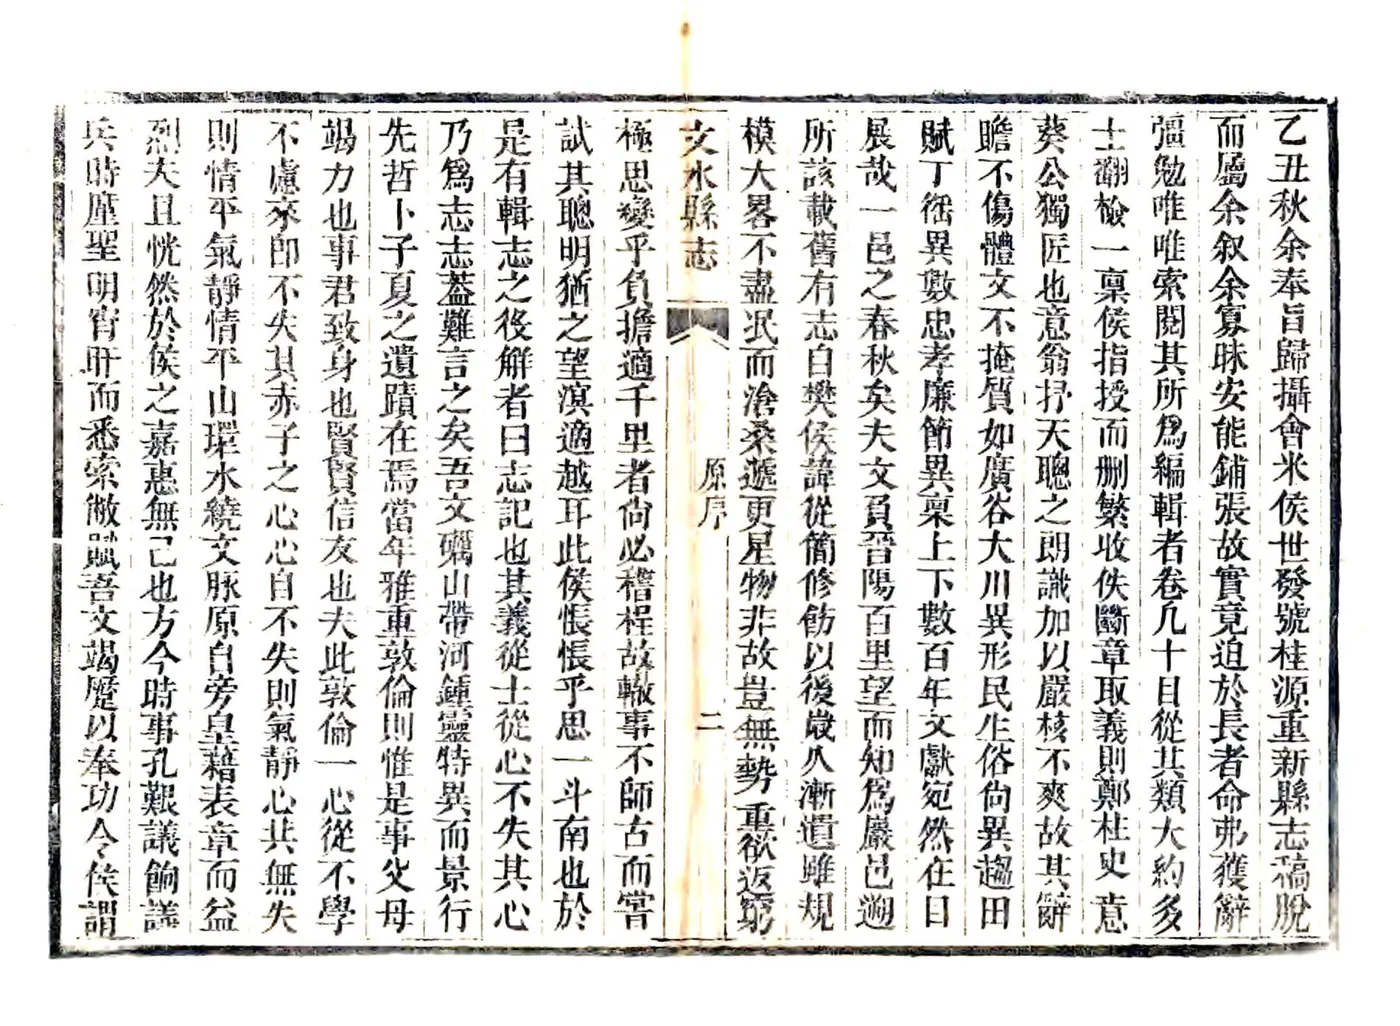 乙丑秋余奉旨歸攝會米侯世發號桂源重新縣志稿脫
而屬余叙余寡昧安能鋪張故實竟迫於長者命弗獲辭
彊勉唯唯索閱其所爲編輯者卷凡十目從其類大約多
士翻檢一稟侯指授而删繁收佚斷章取義則鄭杜史意
葵公獨匠也意翁抒天聰之朗識加以嚴核不爽故其辭
瞻不傷體文不掩質如廣谷大川異形民生俗尙異趨田
賦丁徭異數忠孝廉節異稟上下數百年文獻宛然在目
展哉一邑之春秋矣夫文負晉陽百里望而知爲嚴邑遡
所該載舊有志自樊侯諱從簡修飭以後歲久漸遺雖規
模大畧不盡泯而滄桑遞更星物非故豈無勢重欲返窮
文水縣志 原序 二
極思變乎負擔適千里者尙必稽程故轍事不師古而嘗
試其聰明猶之望溟適越耳此侯悵悵乎思一斗南也於
是有輯志之役解者曰志記也其義從士從心不失其心
乃爲志志蓋難言之矣吾文礪山帶河鍾靈特異而景行
先哲卜子夏之遺蹟在焉當年雅重敦倫則惟是事父母
竭力也事君致身也賢賢信友也夫此敦倫一心從不學
不慮來即不失其赤子之心心自不失則氣靜心共無失
則情平氣靜情平山環水繞文脉原自旁皇藉表章而益
烈夫且恍然於侯之嘉惠無已也方今時事孔艱議餉議
兵時厪聖明宵旰而悉索敝賦吾文竭蹷以奉功令侯謂